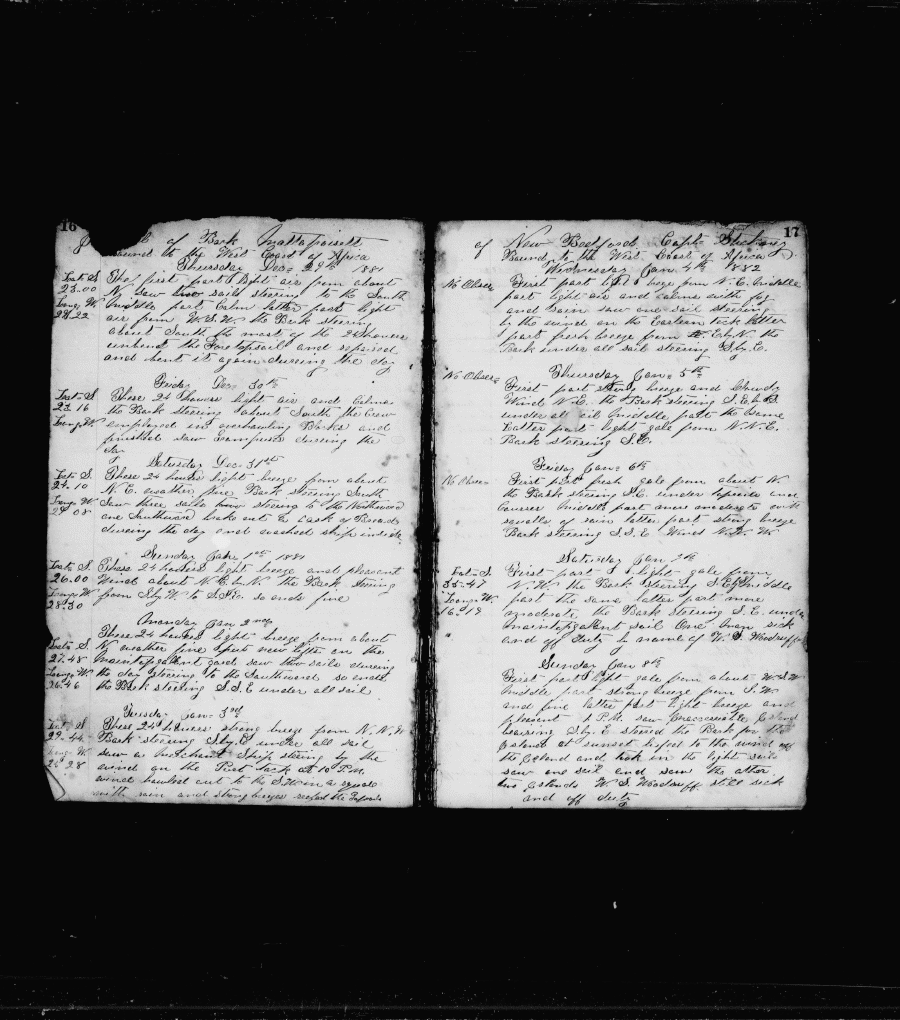 16
of Bark Mattapoisett
Bound to the West Coast of Africa
Thursday Dec= 29th 1881
Lat= S. The first part light air from about
23.00 N saw two sails steering to the South
Long. W Middle part calm latter part light
28.22 air from W.S.W. the Bark steering
about South the most of the 24 houers
unbent the Foretopsail and repaired
and bent it again dureing the day
Friday Dec= 30th
Lat= S These 24 houers light air and Calms
23.16 the Bark steering about South the Crew
Long. W employed in overhauling Boxks and
finished saw during the
Day
Saturday Dec. 31st
Lat= S. These 24 houers light breeze from about
24.10 N.E. weather fine Bark steering South
Long. W Saw three sails two steering to the Northward
29 08 one Southward broke out a Cask of Bread
dureing the day and washed ship inside
Sunday Jan 1st 1881
Lat= S. These 24 houers light breeze and pleasent
26.00 Wind about N.E. by N. the Bark steering
Long. W from S.by W. to S.S.E. so ends fine
28.30
Monday Jan 2nd
These 24 houers light breeze from about
Lat= S. N weather fine put new lifts on the
27.48 maintopgallent yard saw two sails dureing
Long. W. the day steering to the Southward so ends
26.46 the Bark steering S.S.E under all sail
Tuesday Jan= 3rd
Lat= S These 24 houers strong breeze from N.N.W
29.44 Bark steering S.by E under all sail
Long. W. saw a merchant Ship steering by the
28 wind on the Port tack at 10 P.M.
wind hawled out to the S.W. in a squall
with rain and strong breeze reefed the Topsails
17
of New Bedford Capt=
Bound to the West Coast of Africa
Wednesday Jan 4th 1882
No Obser First part light breeze from N.E. middle
part light air and calms with fog
and rain saw one sail steering
by the wind on the Eastern tack latter
part fresh breeze from E.by N. the
Bark under all sail steering S.by E.
Thursday Jan= 5th
No Obser= First part strong breeze and Cloudy
Wind N.E. the Bark steering S.E. by S
under all sail middle part the same
Latter part light gale from N.N.E.
Bark steering S.E.
Friday Jan= 6th
No Obser= First part fresh gale from about N
the Bark steering S.E. under topsails and
Courses Middle part more moderate with
squalls of rain latter part strong breeze
Bark steering S.S.E. Wind N.W. W.
Saturday Jan 7th
Lat= S. First part light gale from
35.47 N.W. the Bark steering S.E. Middle
Long. W. part the same latter part more
16.19 moderate the Bark steering S.E. under
maintopgallent sail One man sick
and off duty by name of W. S. Woodruff
Sunday Jan 8th
First part light gale from about W.S.W
middle part strong breeze from S.W.
and fine latter part light breeze and
pleasent 1 P.M. saw Inaccessable Island
bearing S.by E. steered the Bark for the
Island at sunset lufed to the wind off
the Island and took in the light sails
saw one sail and saw the other
two Eslands W. S. Woodruff still sick
and off duty